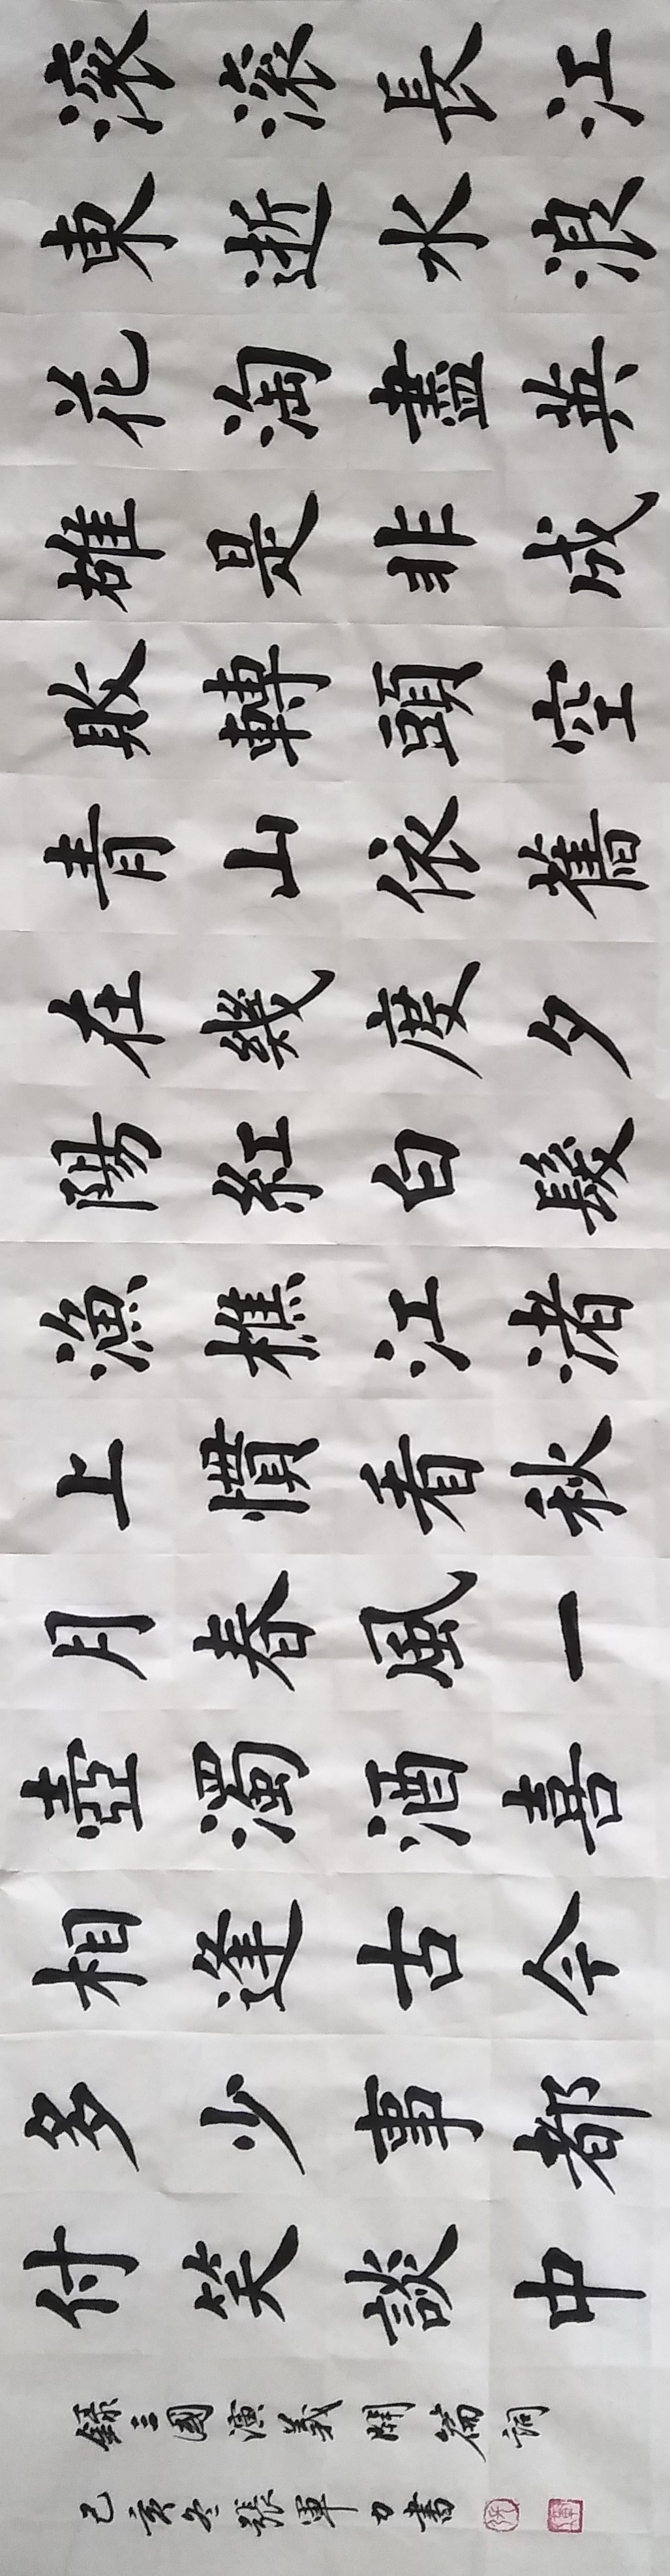 滚滚長江
東逝水浪
花淘盡英
雄是非成
敗轉頭空
青山依舊
在幾度夕
陽紅白髮
漁樵江渚
上慣看秋
月春風一
壺濁酒喜
相逢古今
多少事都
付笑談中
錄三國演義開篇詞
己亥冬張軍力書